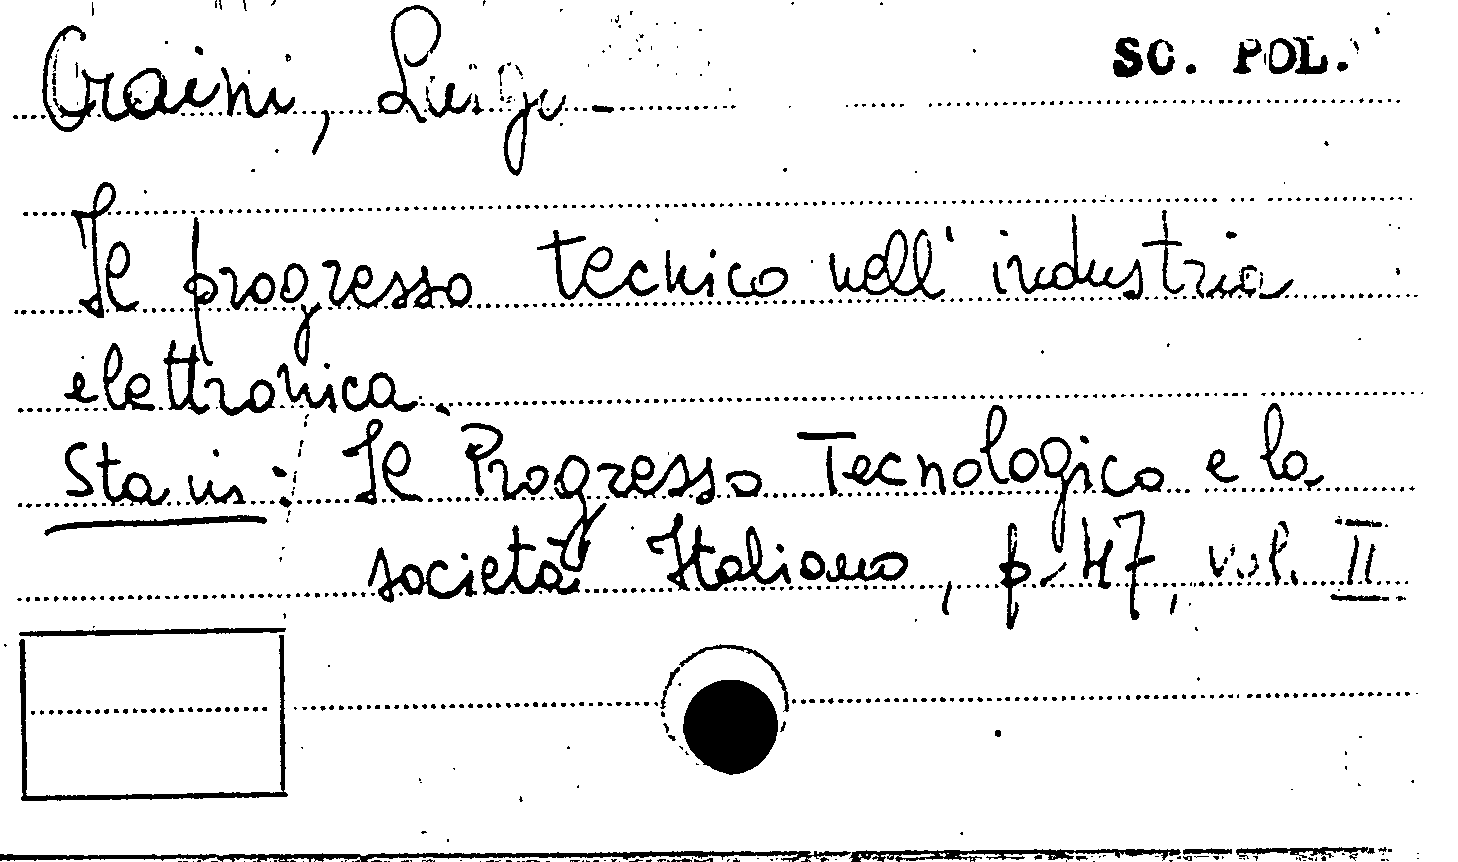 Oraini, Luigi - SC. POL.
Il progresso tecnico nell'industria
elettronica.
Sta in: Il Progresso Tecnologico e la
società Italiana, p. 47, vol. II